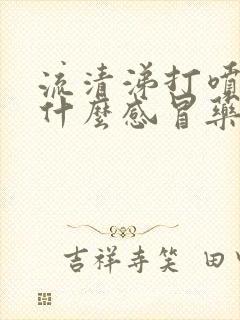 流清涕打噴
什麼感冒藥
吉祥寺笑 田中